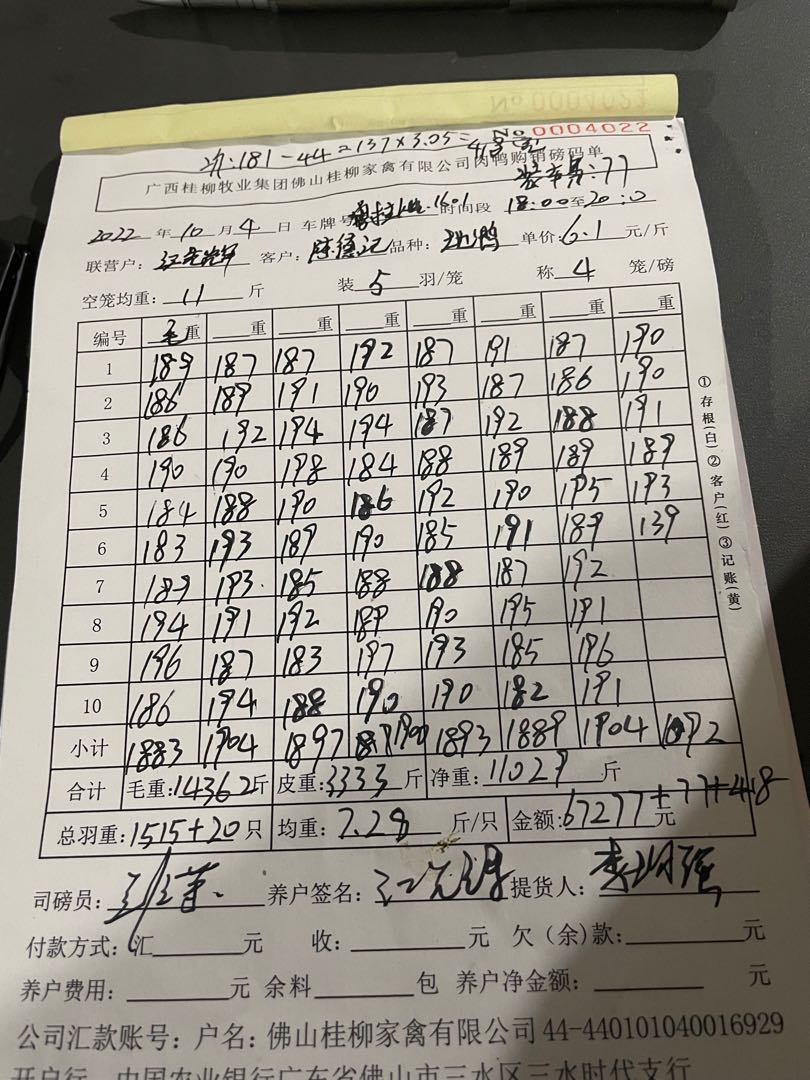 No 0004022
次:181-44=137×3.05=418元
广西桂柳牧业集团佛山桂柳家禽有限公司肉鸭购销磅码单
装车费:77
2022 年 10 月 4 日 车牌号 1601 时间段 18:00至20:0
联营户: 客户: 陈德记 品种: 单价:6.1 元/斤
空笼均重: 11 斤 装 5 羽/笼 称 4 笼/磅
编号 毛重 重 重 重 重 重 重 重
1 189 187 187 192 187 191 187 190
2 186 189 191 190 193 187 186 190
3 186 192 194 194 187 192 188 191
4 190 190 198 184 188 189 189 189
5 184 188 190 186 192 190 195 193
6 183 193 189 190 185 191 189 139
7 189 193 185 188 188 187 192
8 194 191 192 189 190 195 191
9 196 187 183 197 193 185 196
10 186 194 188 190 190 182 191
小计 1883 1904 1897 1900 1893 1889 1904 1092
合计 毛重:14362斤 皮重:3333 斤 净重:11029 斤
总羽重:1515+20只 均重: 7.28 斤/只 金额:67277+77+418元
司磅员: 养户签名: 提货人:
付款方式:汇 元 收: 元 欠(余)款: 元
养户费用: 元 余料 包 养户净金额: 元
公司汇款账号:户名:佛山桂柳家禽有限公司44-440101040016929
开户行 中国农业银行广东省佛山市三水区三水时代支行
①存根(白)②客户(红)③记账(黄)